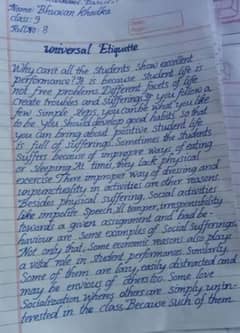 Name: Bhuwan Khadka
class: 9
Roll No: 8
Universal Etiquette
Why can't all the students show excellent
performance? It is because student life is
not free problems. Different facets of life
create troubles and sufferings. If you follow a
few simple steps, you can be what you like
to be. You should develop good habits so that
you can bring about positive student life
is full of sufferings. Sometimes the students
suffers because of improper ways of eating
or sleeping. At times, they lack physical
exercise. There improper way of dressing and
unpunctuality in activities are other reasons.
Besides physical suffering, Social activities
like impolite speech, ill temper, irresponsibility
towards a given assignment and bad be-
haviour are some examples of Social sufferings.
Not only that, Some economic reasons also plays
a vital role in student performance. Similarly,
Some of them are lazy, easily distracted and
may be envious of others too. Some love
Socialization where others are simply unin-
terested in the class. Because such of them